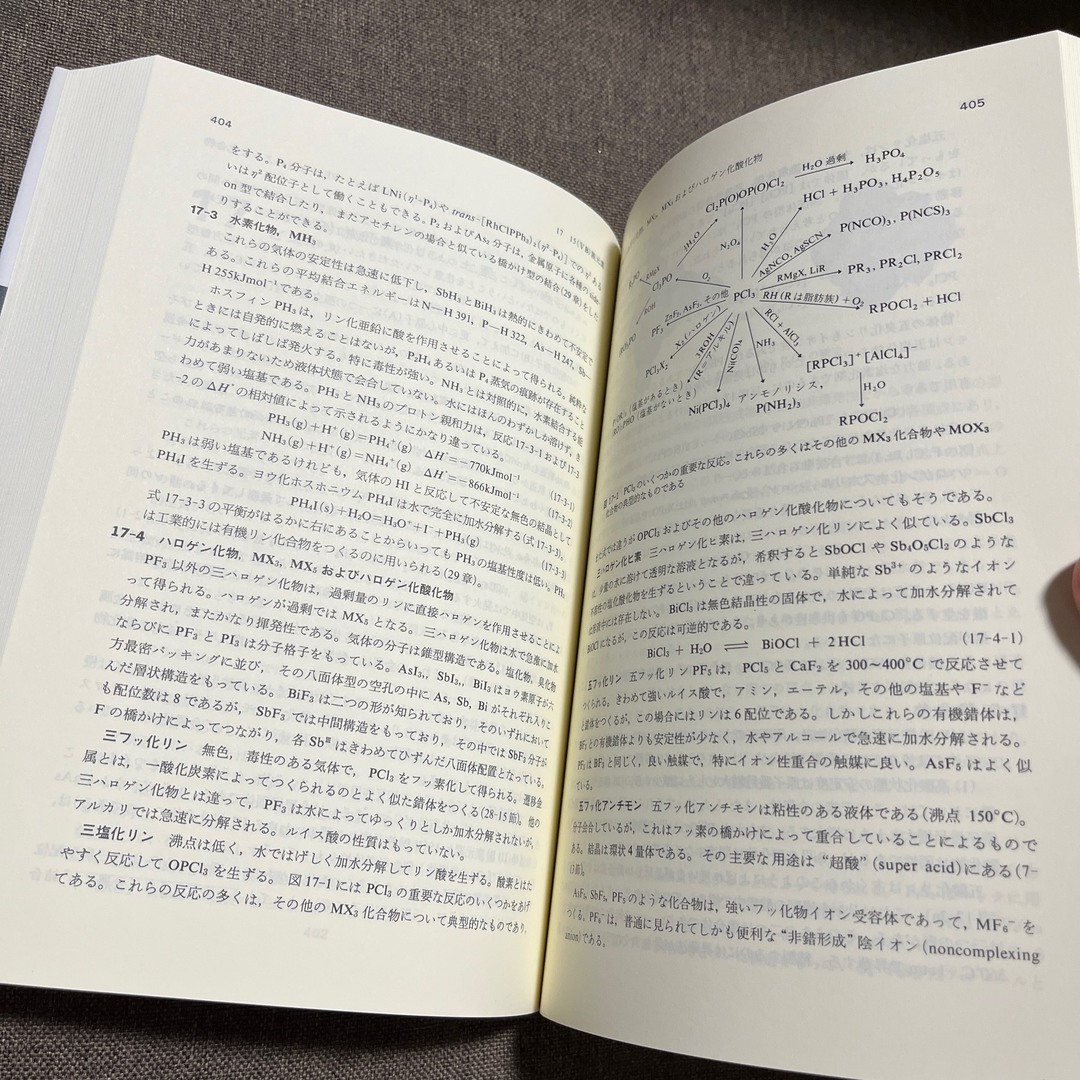 404
をする。P₄ 分子は，たとえば LNi(η²-P₄) や trans-[RhClPPh₃)₂(η²-P₄)] での η¹ ある
いは η² 配位子として働くこともできる。P₂ および As₂ 分子は，金属原子に各種の side-
on 型で結合したり，またアセチレンの場合と似ている橋かけ型の結合(29 章)をした
りすることができる。
17-3 水素化物，MH₃
これらの気体の安定性は急速に低下し，SbH₃ と BiH₃ は熱的にきわめて不安定で
ある。これらの平均結合エネルギーは N—H 391，P—H 322，As—H 247，Sb-
H 255kJmol⁻¹ である。
ホスフィン PH₃ は，リン化亜鉛に酸を作用させることによって得られる。純粋な
ときには自発的に燃えることはないが，P₂H₄ あるいは P₄ 蒸気の痕跡が存在すること
によってしばしば発火する。特に毒性が強い。NH₃ とは対照的に，水素結合する能
力があまりないため液体状態で会合していない。水にはほんのわずかしか溶けず，き
わめて弱い塩基である。PH₃ と NH₃ のプロトン親和力は，反応 17-3-1 および 17-3
-2 の ΔH° の相対値によって示されるようにかなり違っている。
PH₃(g)+H⁺(g)=PH₄⁺(g) ΔH°=−770kJmol⁻¹ (17-3-1)
NH₃(g)+H⁺(g)=NH₄⁺(g) ΔH°=−866kJmol⁻¹ (17-3-2)
PH₃ は弱い塩基であるけれども，気体の HI と反応して不安定な無色の結晶として
PH₄I を生ずる。ヨウ化ホスホニウム PH₄I は水で完全に加水分解する(式 17-3-3)。
PH₄I(s)+H₂O=H₃O⁺+I⁻+PH₃(g) (17-3-3)
式 17-3-3 の平衡がはるかに右にあることからいっても PH₃ の塩基性度は低い。PH₃
は工業的には有機リン化合物をつくるのに用いられる(29 章)。
17-4 ハロゲン化物，MX₃，MX₅ およびハロゲン化酸化物
PF₃ 以外の三ハロゲン化物は，過剰量のリンに直接ハロゲンを作用させることによ
って得られる。ハロゲンが過剰では MX₅ となる。三ハロゲン化物は水で急激に加水
分解され，またかなり揮発性である。気体の分子は錐型構造である。塩化物，臭化物
ならびに PF₃ と PI₃ は分子格子をもっている。AsI₃，SbI₃，BiI₃ はヨウ素原子が六
方最密パッキングに並び，その八面体型の空孔の中に As, Sb, Bi がそれぞれ入りこ
んだ層状構造をもっている。BiF₃ は二つの形が知られており，そのいずれにおいて
も配位数は 8 であるが，SbF₃ では中間構造をもっており，その中では SbF₃ 分子が
F の橋かけによってつながり，各 Sbᴵᴵᴵ はきわめてひずんだ八面体配置となっている。
三フッ化リン 無色，毒性のある気体で，PCl₃ をフッ素化して得られる。遷移金
属とは，一酸化炭素によってつくられるのとよく似た錯体をつくる(28-15節)。他の
三ハロゲン化物とは違って，PF₃ は水によってゆっくりとしか加水分解されないが，
アルカリでは急速に分解される。ルイス酸の性質はもっていない。
三塩化リン 沸点は低く，水ではげしく加水分解してリン酸を生ずる。酸素とはた
やすく反応して OPCl₃ を生ずる。図 17-1 には PCl₃ の重要な反応のいくつかをあげ
てある。これらの反応の多くは，その他の MX₃ 化合物について典型的なものであり，
405
MX₃, MX₅ およびハロゲン化酸化物
Cl₂P(O)OP(O)Cl₂
H₂O 過剰
H₃PO₄
HCl + H₃PO₃, H₄P₂O₅
P(NCO)₃, P(NCS)₃
N₂O₄
H₂O
AgNCO, AgSCN
Cl₃PO
O₂
RMgX, LiR
PR₃, PR₂Cl, PRCl₂
ZnF₂, AsF₃, その他
PCl₃
RH (R は脂肪族) + O₂
RPOCl₂ + HCl
PF₃
X₂ (ハロゲン)
PCl₃X₂
3ROH
(R=アルキル)
Ni(CO)₄
NH₃
RCl + AlCl₃
[RPCl₃]⁺[AlCl₄]⁻
P(OR)₃ (塩基があるとき)
(RO)₂PHO (塩基がないとき)
Ni(PCl₃)₄
アンモノリシス，
P(NH₂)₃
H₂O
RPOCl₂
図 17-1 PCl₃ のいくつかの重要な反応。これらの多くはその他の MX₃ 化合物や MOX₃
化合物の典型的なものである
また式では違うが OPCl₃ およびその他のハロゲン化酸化物についてもそうである。
三ハロゲン化ヒ素 三ハロゲン化ヒ素は，三ハロゲン化リンによく似ている。SbCl₃
は，少量の水に溶けて透明な溶液となるが，希釈すると SbOCl や Sb₄O₅Cl₂ のような
不溶性の塩化酸化物を生ずるということで違っている。単純な Sb³⁺ のようなイオン
は溶液中には存在しない。BiCl₃ は無色結晶性の固体で，水によって加水分解されて
BiOCl になるが，この反応は可逆的である。
BiCl₃ + H₂O ⇌ BiOCl + 2HCl (17-4-1)
五フッ化リン 五フッ化リン PF₅ は，PCl₅ と CaF₂ を 300〜400°C で反応させて
つくられる。きわめて強いルイス酸で，アミン，エーテル，その他の塩基や F⁻ など
と錯体をつくるが，この場合にはリンは 6 配位である。しかしこれらの有機錯体は，
BF₃ との有機錯体よりも安定性が少なく，水やアルコールで急速に加水分解される。
PF₅ は BF₃ と同じく，良い触媒で，特にイオン性重合の触媒に良い。AsF₅ はよく似
ている。
五フッ化アンチモン 五フッ化アンチモンは粘性のある液体である(沸点 150°C)。
分子会合しているが，これはフッ素の橋かけによって重合していることによるもので
ある。結晶は環状4量体である。その主要な用途は“超酸”(super acid)にある(7-
13節)。
AsF₅, SbF₅, PF₅ のような化合物は，強いフッ化物イオン受容体であって，MF₆⁻ を
つくる。PF₆⁻ は，普通に見られてしかも便利な“非錯形成”陰イオン(noncomplexing
anion)である。